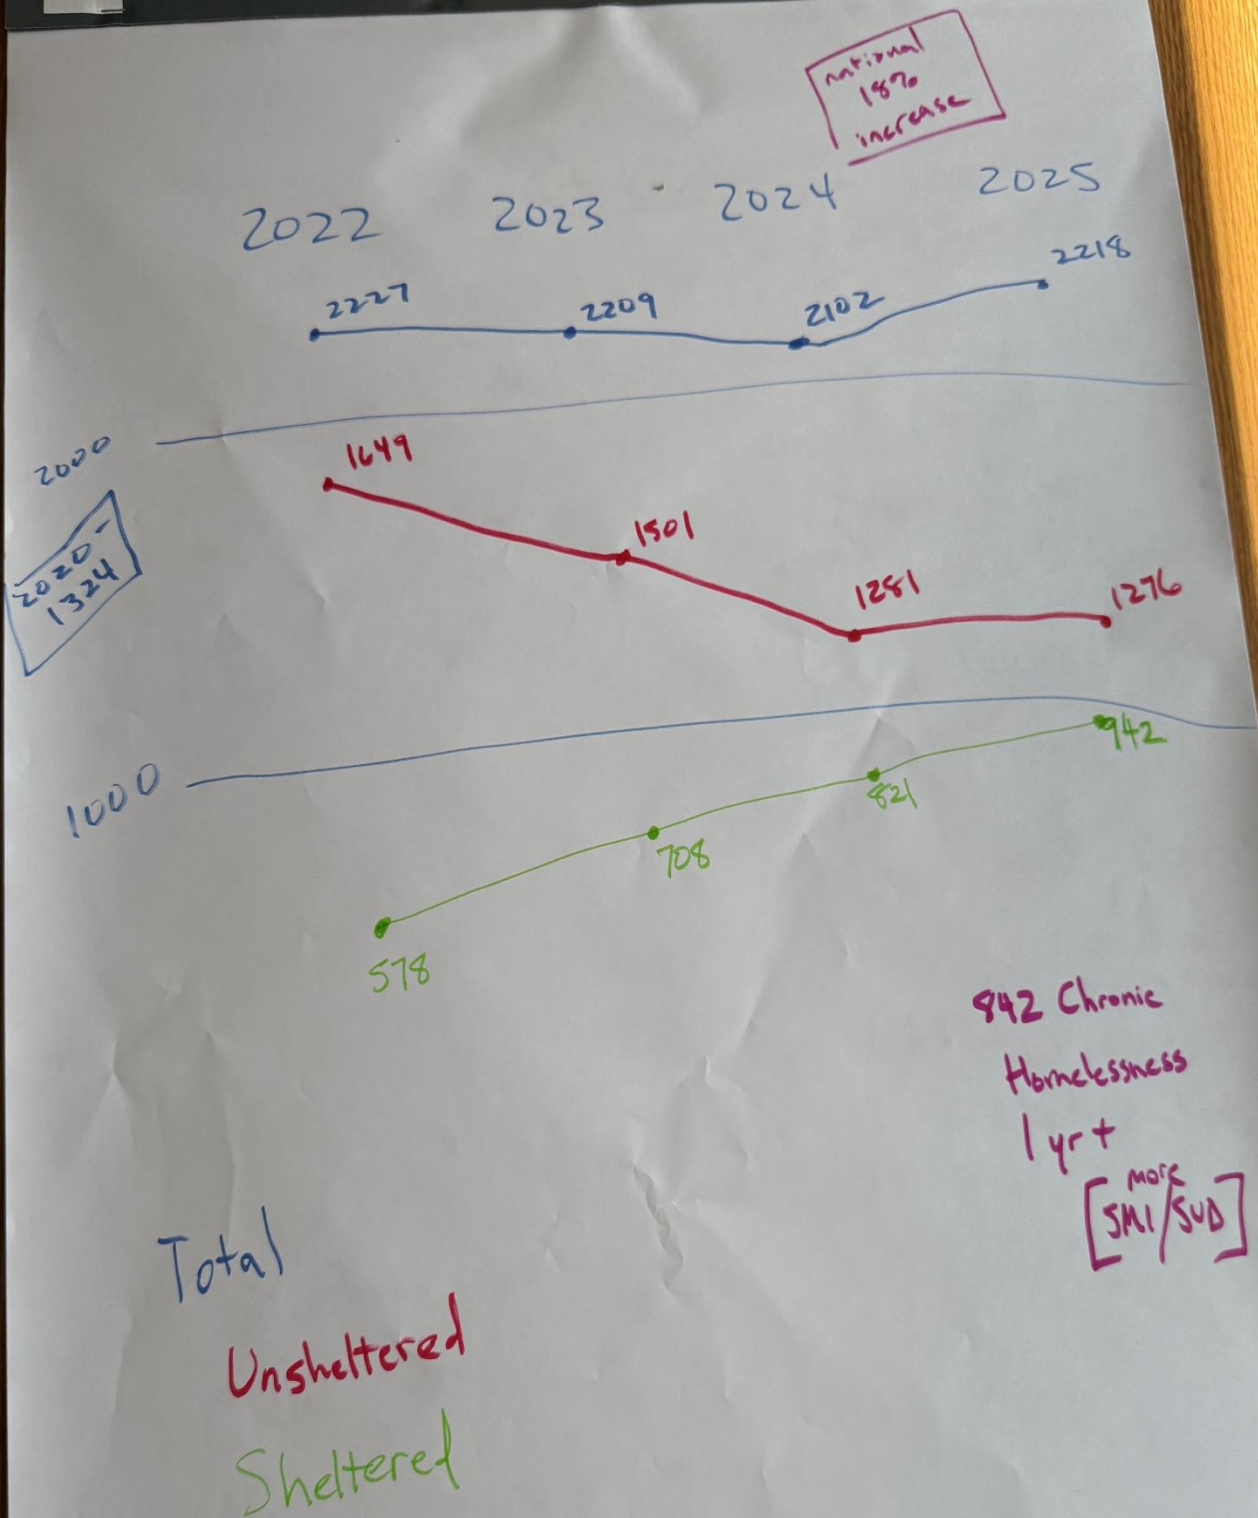 national
18%
increase
2022 2023 2024 2025
2227 2209 2102 2218
2000
1649
1501
1281
1276
2020 -
1324
1000
942
821
708
578
842 Chronic
Homelessness
1 yr +
more
[SMI/SUD]
Total
Unsheltered
Sheltered